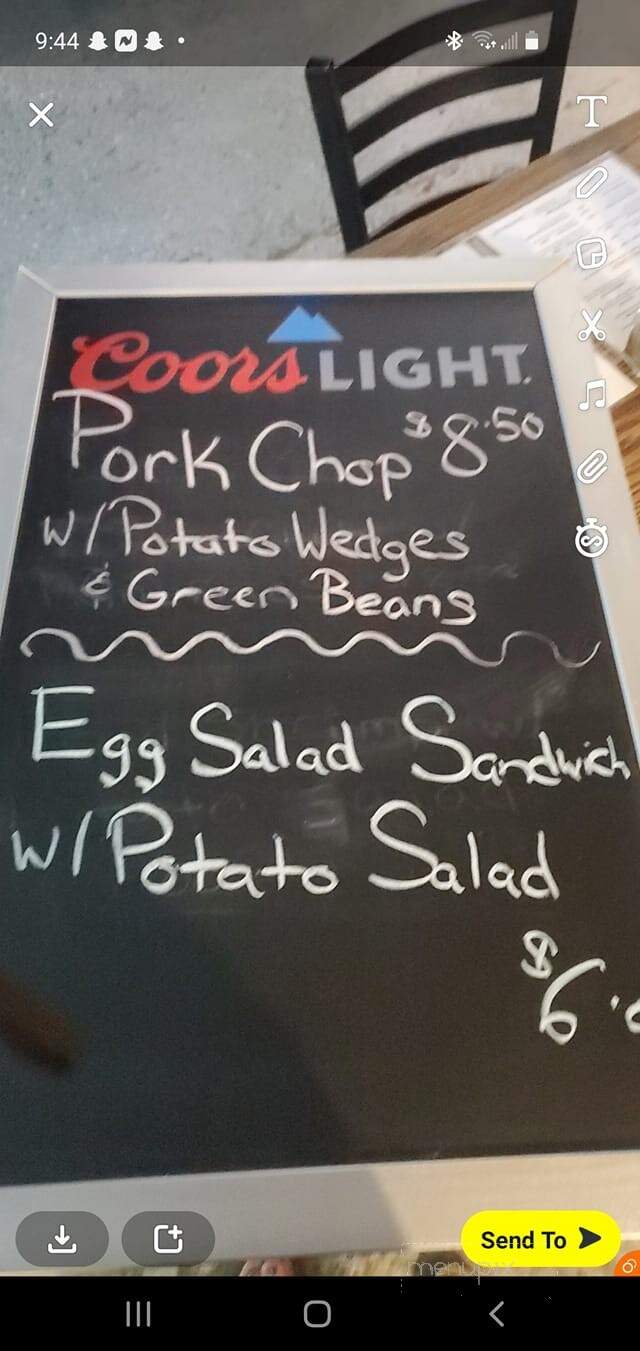 9:44
T
Coors LIGHT
Pork Chop $8.50
W/Potato Wedges
& Green Beans
Egg Salad Sandwich
W/Potato Salad
$6.
Send To
menupix